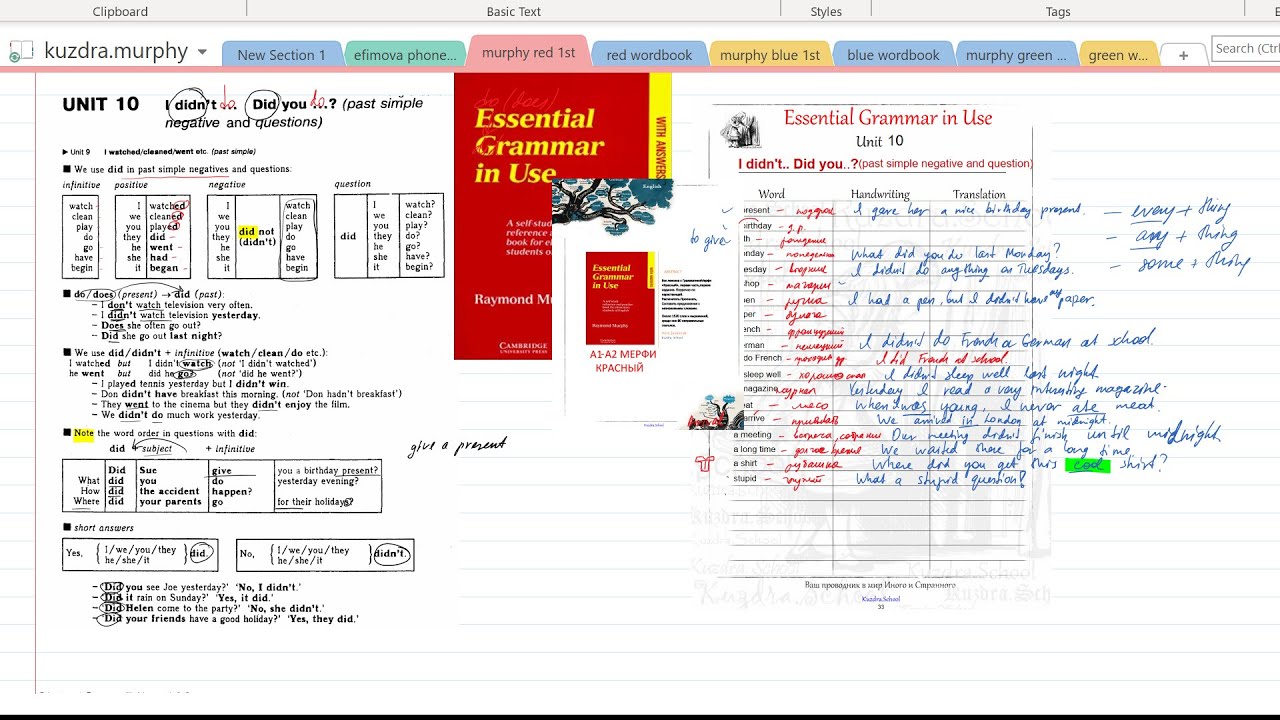 Clipboard
Basic Text
Styles
Tags
kuzdra.murphy
New Section 1
efimova phone...
murphy red 1st
red wordbook
murphy blue 1st
blue wordbook
murphy green ...
green w...
+
Search (Ctrl
UNIT 10 I didn't do. Did you do..? (past simple
negative and questions)
► Unit 9 I watched/cleaned/went etc. (past simple)
■ We use did in past simple negatives and questions:
infinitive positive negative question
watch I watched I watch I watch?
clean we cleaned we clean we clean?
play you played you play you play?
do they did they did not do did they do?
go he went he (didn't) go he go?
have she had she have she have?
begin it began it begin it begin?
■ do/does (present) → did (past):
– I don't watch television very often.
– I didn't watch television yesterday.
– Does she often go out?
– Did she go out last night?
■ We use did/didn't + infinitive (watch/clean/do etc.):
I watched but I didn't watch (not 'I didn't watched')
he went but did he go? (not 'did he went?')
– I played tennis yesterday but I didn't win.
– Don didn't have breakfast this morning. (not 'Don hadn't breakfast')
– They went to the cinema but they didn't enjoy the film.
– We didn't do much work yesterday.
■ Note the word order in questions with did:
did + subject + infinitive
give a present
Did Sue give you a birthday present?
What did you do yesterday evening?
How did the accident happen?
Where did your parents go for their holidays?
■ short answers
Yes, I/we/you/they he/she/it did.
No, I/we/you/they he/she/it didn't.
– 'Did you see Joe yesterday?' 'No, I didn't.'
– 'Did it rain on Sunday?' 'Yes, it did.'
– 'Did Helen come to the party?' 'No, she didn't.'
– 'Did your friends have a good holiday?' 'Yes, they did.'
do (does)
Essential
Grammar
in Use
WITH ANSWERS
A self-stud
reference a
book for el
students o
Raymond Mu
CAMBRIDGE
UNIVERSITY PRESS
English
Essential
Grammar
in Use
Raymond Murphy
А1-А2 МЕРФИ
КРАСНЫЙ
Essential Grammar in Use
Unit 10
I didn't.. Did you..?(past simple negative and question)
Word Handwriting Translation
to give
present – подарок I gave her a nice birthday present. – every + thing
irthday – д.р. – any + thing
th – рождение
nday – понедельник What did you do last Monday? some + thing
esday – вторник I didn't do anything on Tuesdays.
hop – магазин
pen – ручка I had a pen, but I didn't have paper.
per – бумага
ench – французский
rman – немецкий I didn't do French or German at school.
do French – I did French at school.
sleep well – хорошо спал I didn't sleep well last night.
magazine – журнал Yesterday I read a very interesting magazine.
eat – мясо When I was young, I never ate meat.
arrive – прибывать We arrived in London at midnight.
a meeting – встреча, собрание Our meeting didn't finish until midnight
a long time – долгое время We waited there for a long time
a shirt – рубашка Where did you get this cool shirt?
stupid – глупый What a stupid question!
Kuzdra.School
Ваш проводник в мир Иного и Странного
Kuzdra.School
33